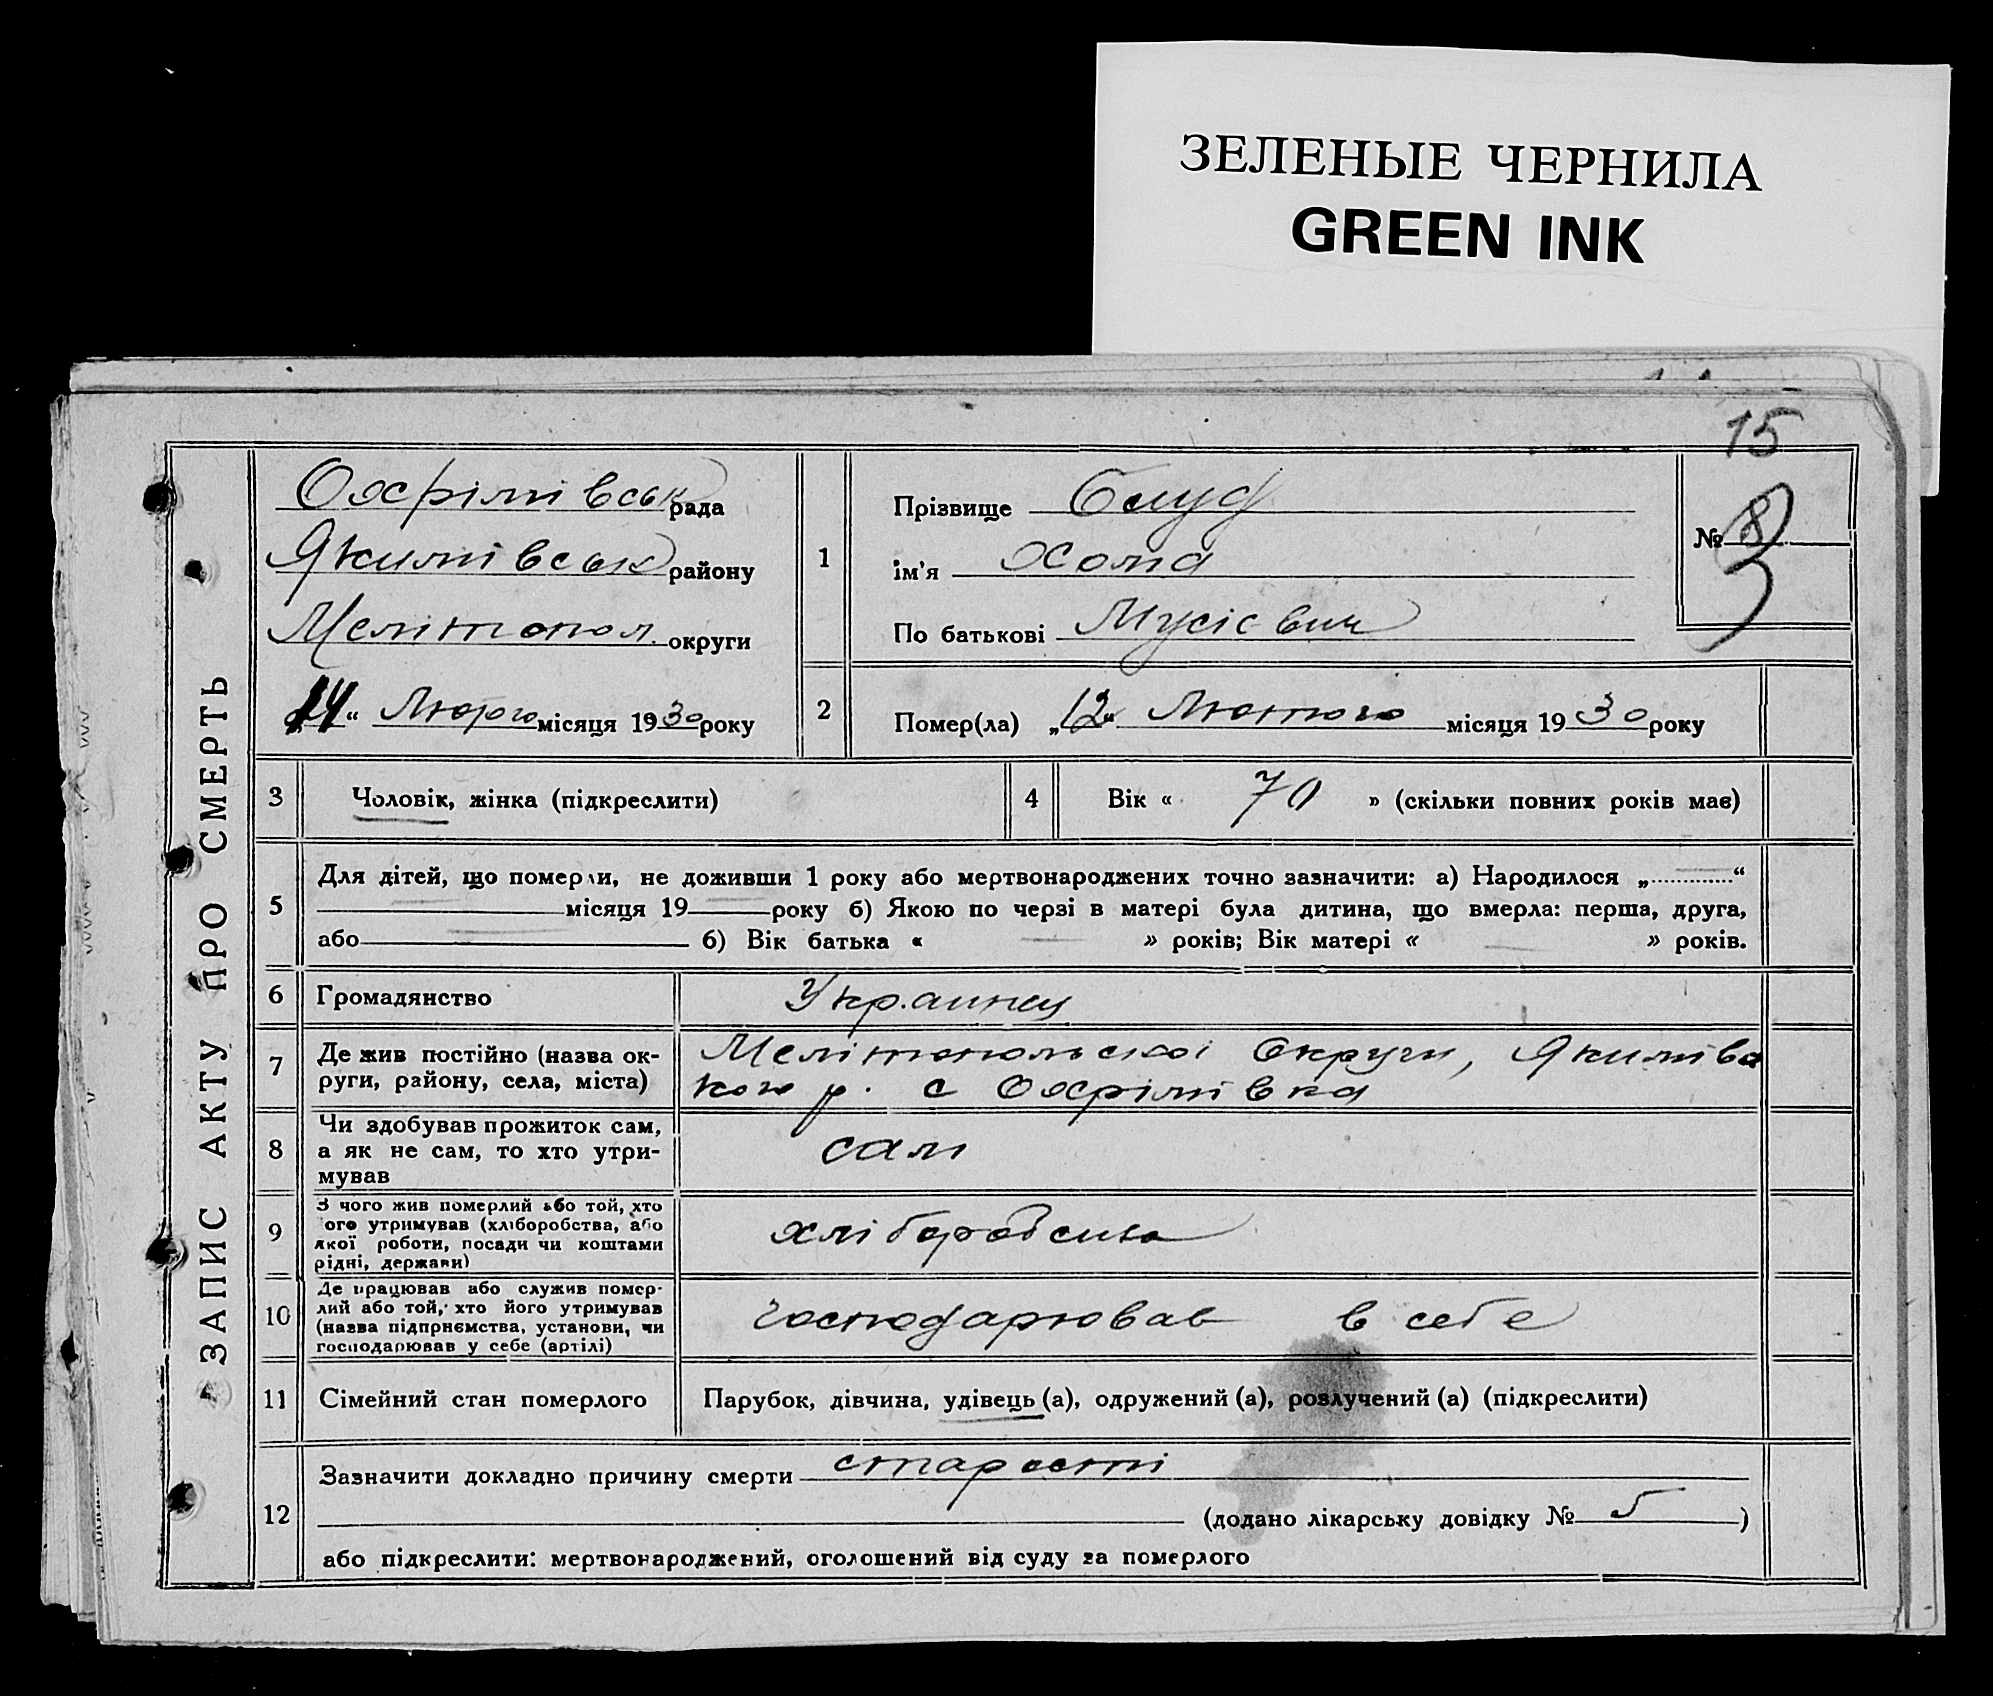 ЗЕЛЕНЫЕ ЧЕРНИЛА
GREEN INK
15
ЗАПИС АКТУ ПРО СМЕРТЬ
Охрімівськ рада
Якимівськ району
Мелітопол. округи
14 “ Лютого місяця 1930 року
1
Прізвище
ім'я Хома
По батькові Мусієвич
№ 8
2
Помер(ла) „12“ Лютого місяця 1930 року
3 Чоловік, жінка (підкреслити)
4 Вік « 70 » (скільки повних років має)
5
Для дітей, що померли, не доживши 1 року або мертвонароджених точно зазначити: а) Народилося „ “
місяця 19 року б) Якою по черзі в матері була дитина, що вмерла: перша, друга,
або б) Вік батька « » років; Вік матері « » років.
6 Громадянство Украинец
7
Де жив постійно (назва ок-
руги, району, села, міста)
Мелітопольської Округи, Якимівсь
кого р. с Охрімівка
8
Чи здобував прожиток сам,
а як не сам, то хто утри-
мував
сам
9
З чого жив померлий або той, хто
ого утримував (хліборобства, або
якої роботи, посади чи коштами
рідні, держави)
хліборобства
10
Де працював або служив помер-
лий або той, хто його утримував
(назва підприємства, установи, чи
господарював у себе (артілі)
господарював в себе
11 Сімейний стан померлого
Парубок, дівчина, удівець (а), одружений (а), розлучений (а) (підкреслити)
12
Зазначити докладно причину смерти старості
(додано лікарську довідку № 5 )
або підкреслити: мертвонароджений, оголошений від суду за померлого